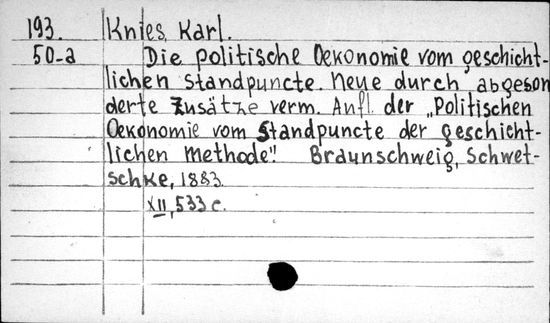 193. Knies, Karl.
50-a Die politische Oekonomie vom geschicht-
lichen Standpuncte. Neue durch abgeson
derte Zusätze verm. Aufl. der „Politischen
Oekonomie vom Standpuncte der geschicht-
lichen Methode". Braunschweig, Schwet-
schke, 1883.
XII, 533 c.